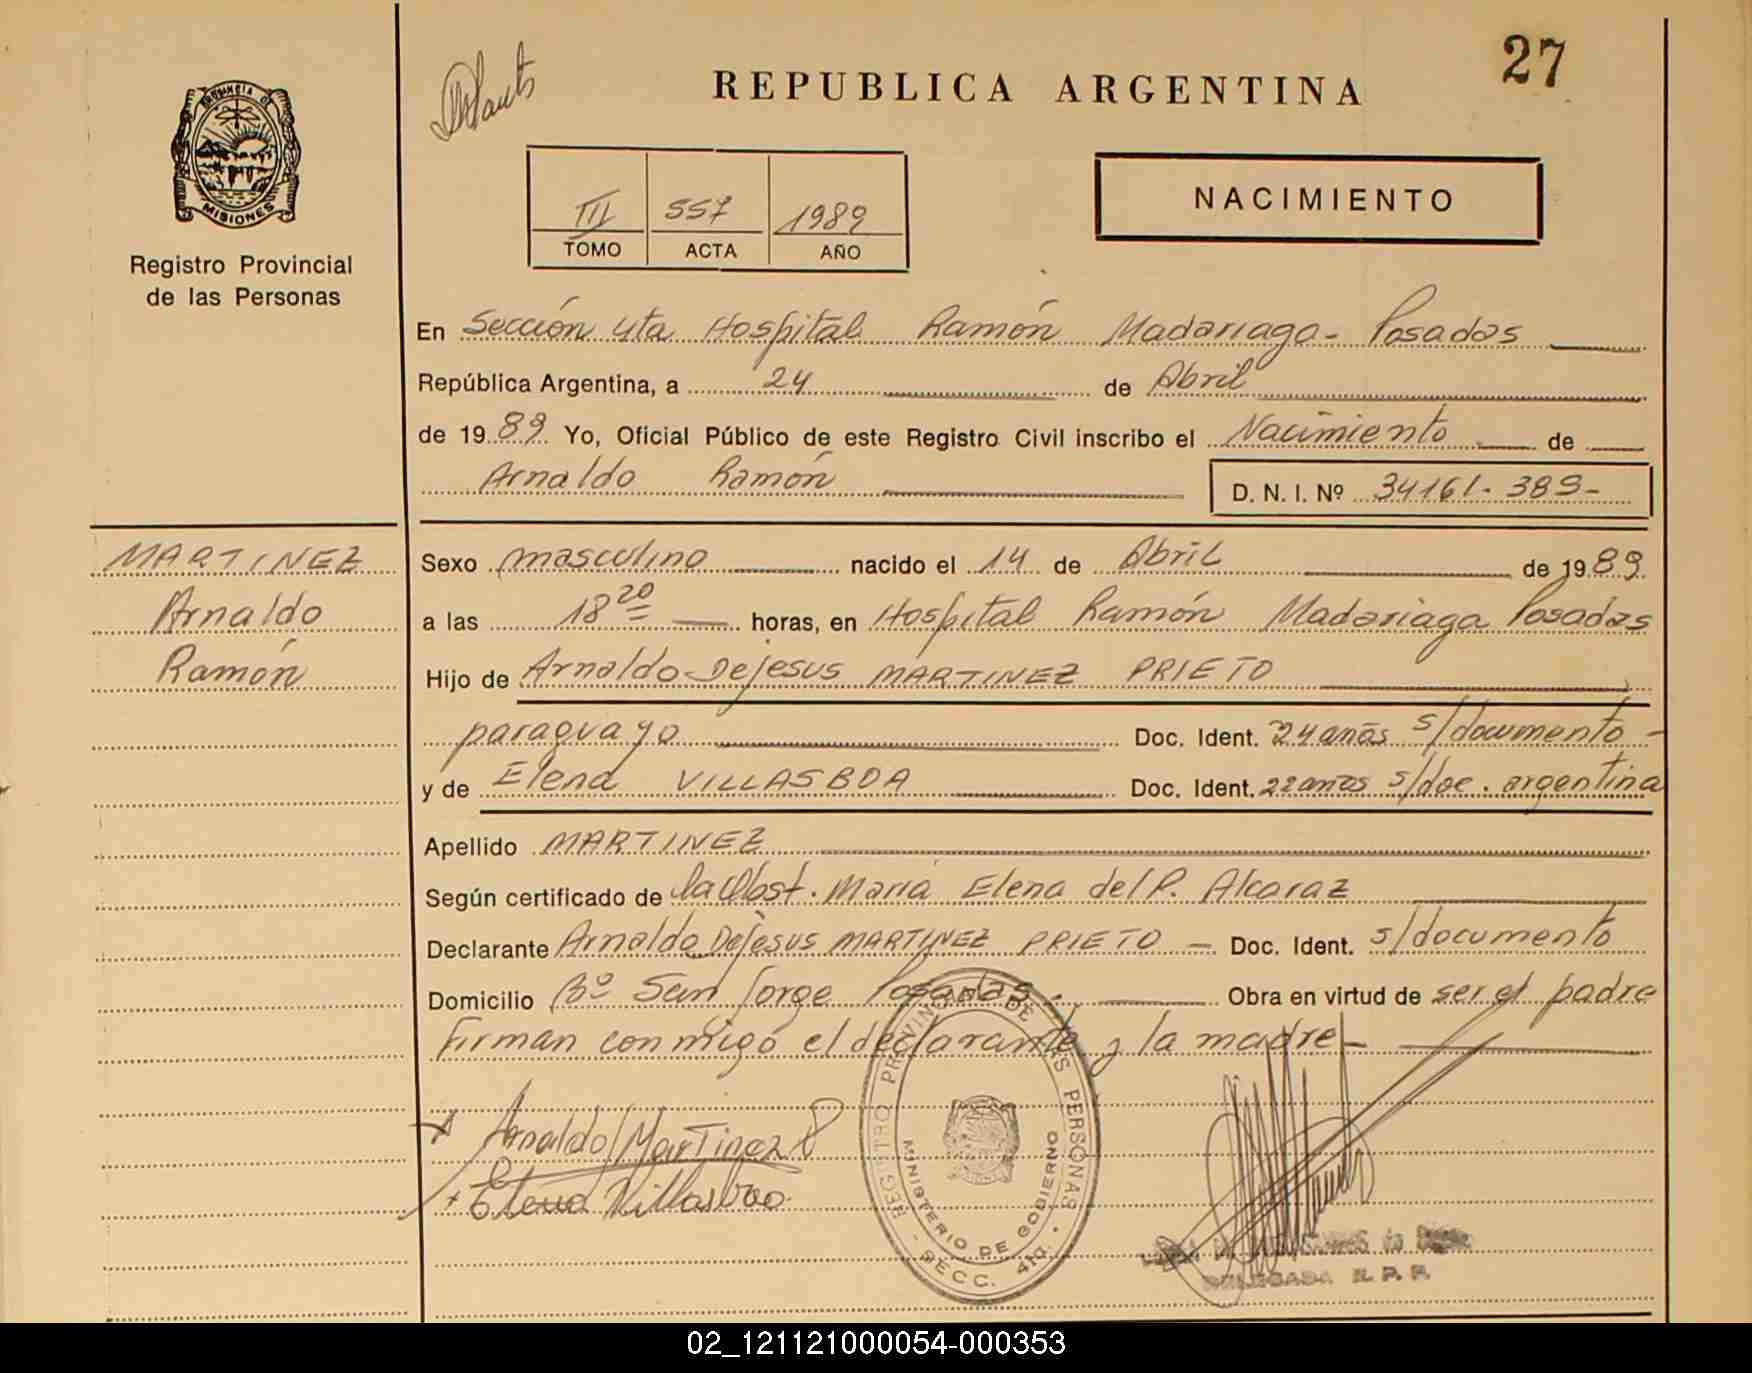 27
REPUBLICA ARGENTINA
PROVINCIA DE
MISIONES
Registro Provincial
de las Personas
III 557 1989
TOMO ACTA AÑO
NACIMIENTO
En Sección 4ta Hospital Ramón Madariaga - Posadas
República Argentina, a 24 de Abril
de 1989 Yo, Oficial Público de este Registro Civil inscribo el Nacimiento de
Arnaldo Ramón D. N. I. Nº 34161.389-
MARTINEZ
Arnaldo
Ramón
Sexo masculino nacido el 14 de Abril de 1989
a las 18 20 horas, en Hospital Ramón Madariaga Posadas
Hijo de Arnaldo Dejesus MARTINEZ PRIETO
paraguayo Doc. Ident. 24 años s/documento -
y de Elena VILLASBOA Doc. Ident. 22 años s/doc. argentina
Apellido MARTINEZ
Según certificado de la Obst. María Elena del R. Alcaraz
Declarante Arnaldo Dejesus MARTINEZ PRIETO - Doc. Ident. s/documento
Domicilio Bº San Jorge Posadas. Obra en virtud de ser el padre
Firman conmigo el declarante y la madre -
Arnaldo Martinez P
+ Elena Villasboa
REGISTRO PROVINCIAL DE LAS PERSONAS
MINISTERIO DE GOBIERNO
- SECC. 4ta. -
DELEGADA R. P. P.
02_121121000054-000353